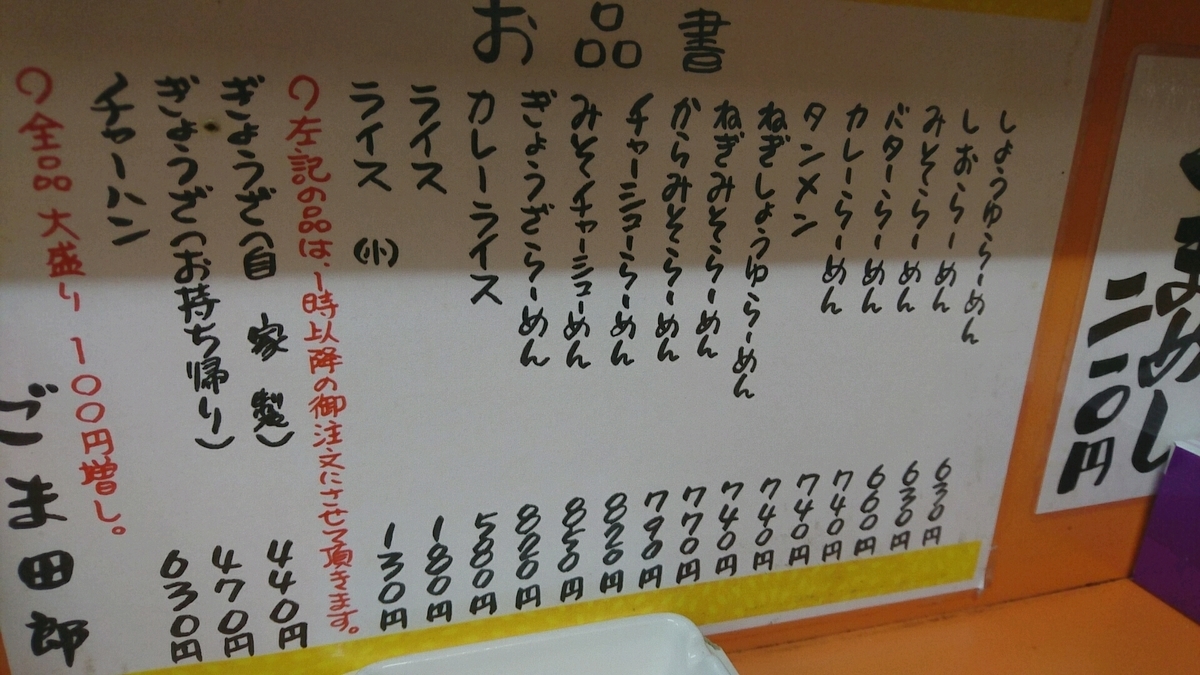 お品書
しょうゆらーめん 630円
しおらーめん 630円
みそらーめん 600円
バターらーめん 740円
カレーらーめん 740円
タンメン 740円
ねぎしょうゆらーめん 740円
ねぎみそらーめん 770円
からみそらーめん 790円
チャーシューらーめん 820円
みそチャーシューらーめん 850円
ぎょうざらーめん 820円
カレーライス 580円
ライス 180円
ライス (小) 130円
○左記の品は、1時以降の御注文にさせて頂きます。
ぎょうざ(自家製) 440円
ぎょうざ(お持ち帰り) 470円
チャーハン 630円
○全品大盛り100円増し。
ごま田郎
まめし
二一〇円